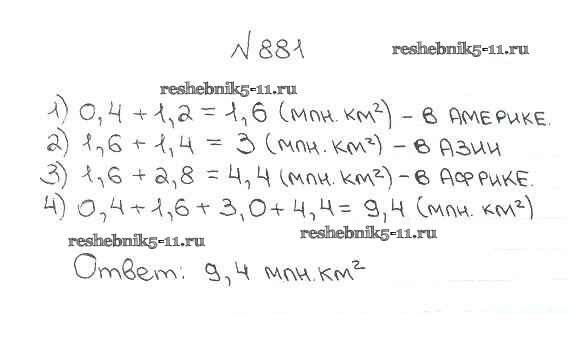 №881
reshebnik5-11.ru
reshebnik5-11.ru
1) 0,4 + 1,2 = 1,6 (млн. км²) – в АМЕРИКЕ.
2) 1,6 + 1,4 = 3 (млн. км²) – в АЗИИ
3) 1,6 + 2,8 = 4,4 (млн. км²) – в АФРИКЕ.
4) 0,4 + 1,6 + 3,0 + 4,4 = 9,4 (млн. км²)
reshebnik5-11.ru
reshebnik5-11.ru
Ответ: 9,4 млн. км²